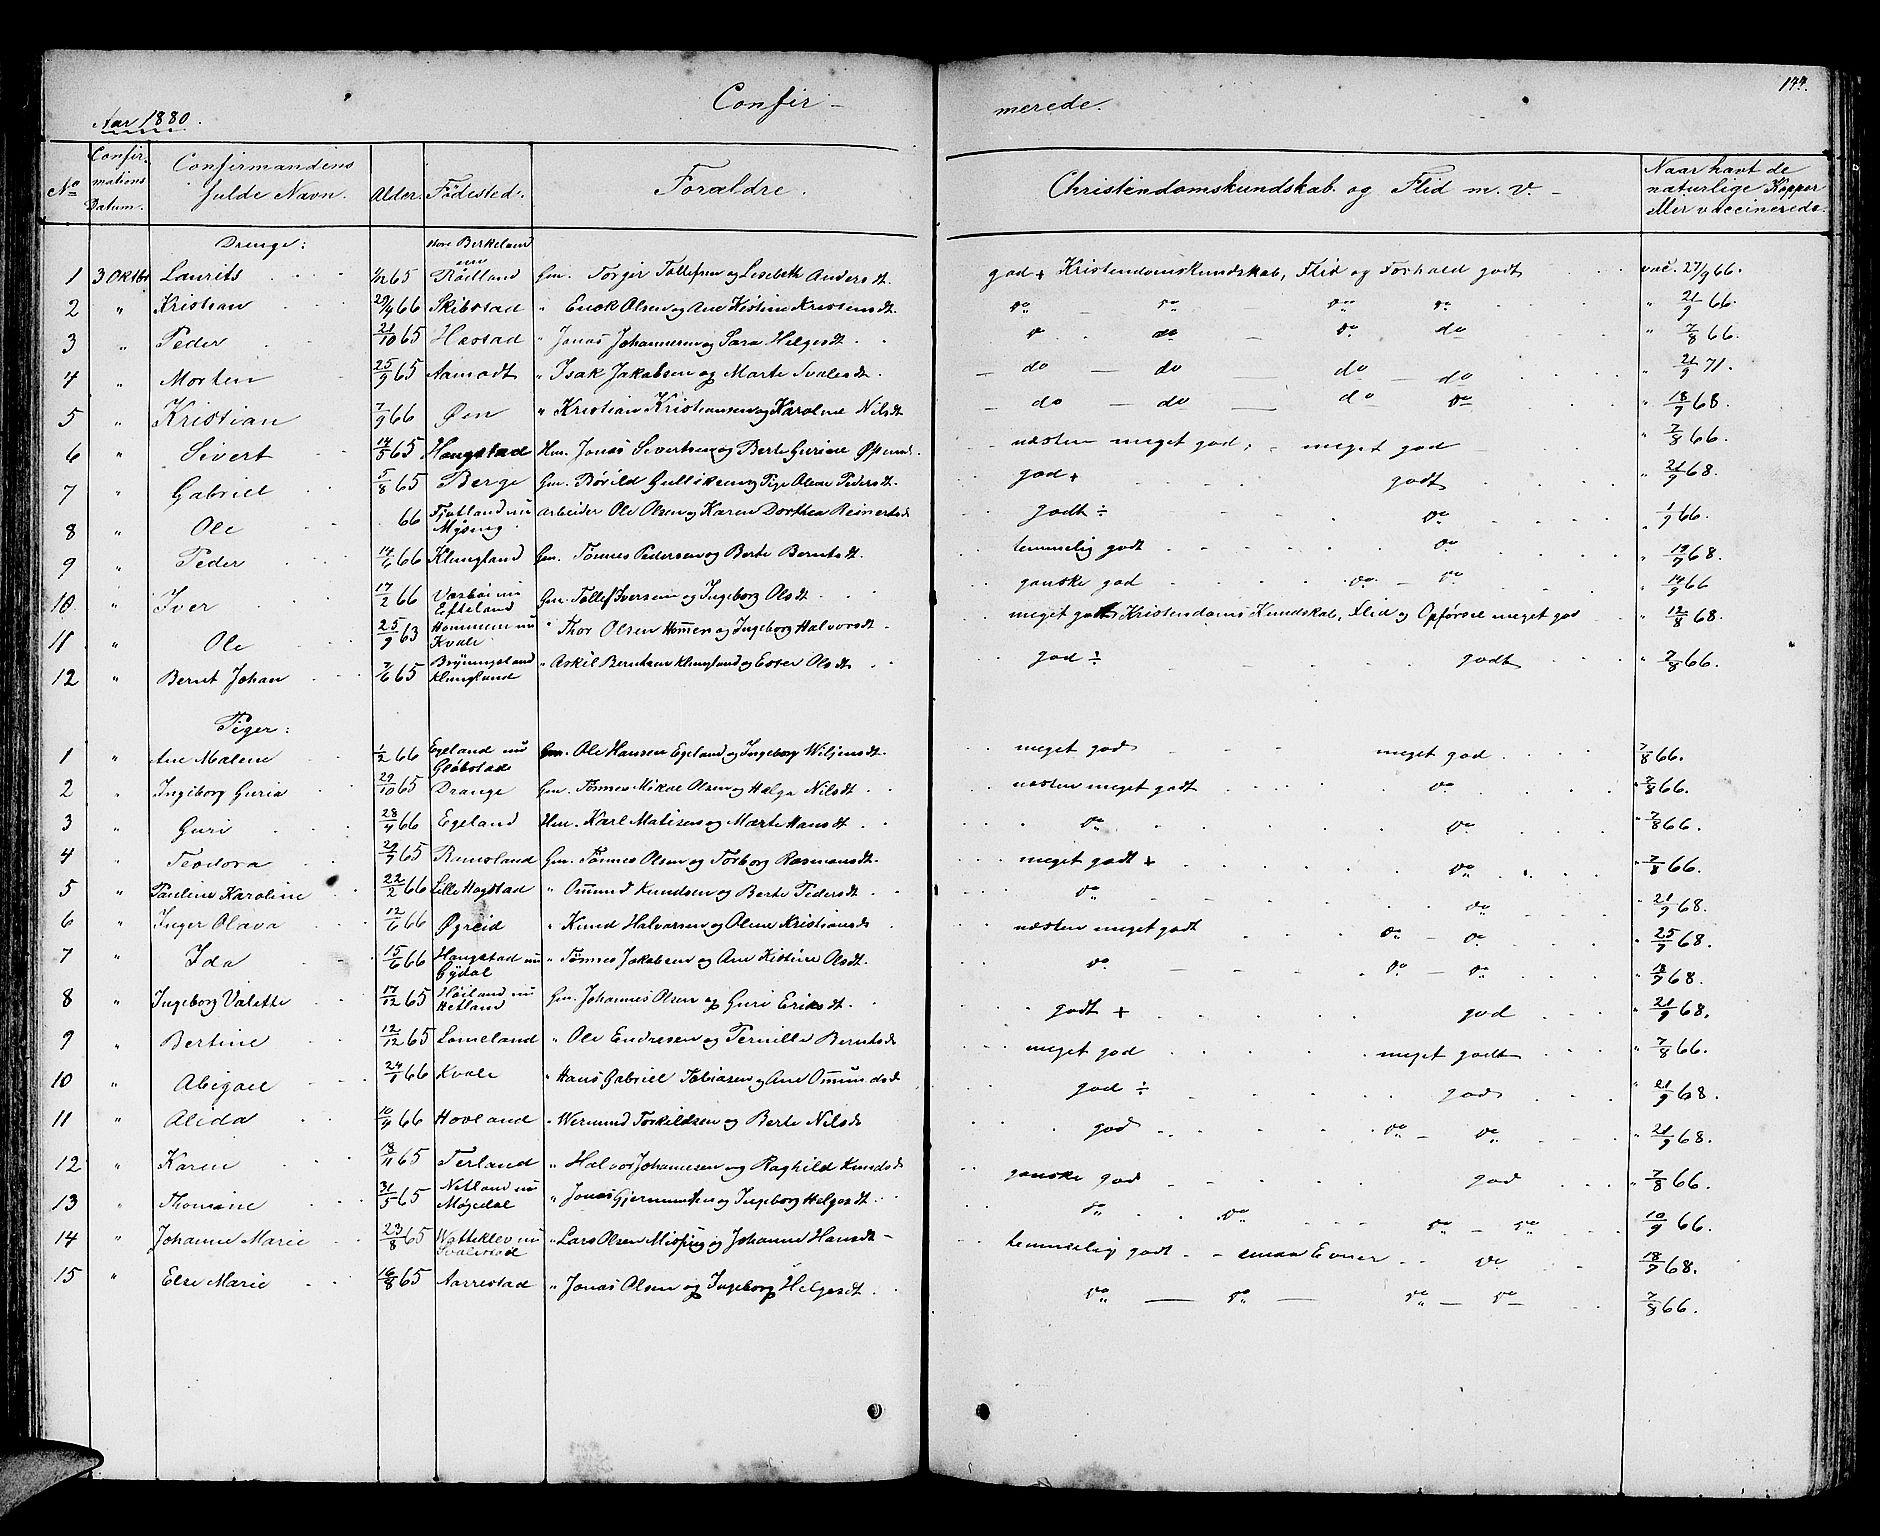 177.
Aar 1880. Confir- merede.
No Confirmations Datum. Confirmandens fulde Navn. Alder. Födested. Forældre. Christendomskundskab og Flid m. v. Naar havt de naturlige Kopper eller vaccinerede.
Drenge:
1 3 Oktbr Laurits 65 store Birkeland nu Gm. Torger Tollefsen og Lisebeth Andersdt. god + Kristendomskundskab, Flid og Forhold godt vac. 27/9 66.
2 " Kristian 29/4 66 Skibstad " Enok Olsen og Ane Kistine Kristensdt. do do do do " 21/9 66.
3 " Peder 21/10 65 Hæstad " Jonas Johannesen og Sara Helgesdt. do do do do " 7/8 66.
4 " Morten 25/9 65 Aamodt " Isak Jakobsen og Marte Svalesdt. do do do do " 21/9 71.
5 " Kristian 7/9 66 Øen " Kristian Kristiansen og Karoline Nilsdt do do do do " 18/9 68.
6 " Sivert 14/5 65 Haugstad Hm. Jonas Sivertsen og Berte Gurine næsten meget god, - meget god " 7/8 66.
7 " Gabriel 5/8 65 Berge Gm. Bövild Gulliksen og Pige Olene Pedersdt. god + godt " 21/9 68.
8 " Ole 66 Fjotland nu Mysing arbeider Ole Olsen og Karen Dorthea Reinertsdt godt ÷ do " 1/9 66.
9 " Peder 14/6 66 Klungland Gm. Tönnes Pedersen og Berte Berntsdt. temmelig godt do " 19/9 68.
10 " Iver 17/2 66 Vasbö nu Efteland Gm. Tollef Iversen og Ingeborg Olsdt ganske god do do " 14/9 66
11 " Ole 25/9 63 Hommen nu Kvale " Thor Olsen Homen og Ingeborg Halvorsdt. meget godt Kristendoms Kundskab, Flid og Opförsel meget god " 12/8 68.
12 " Bernt Johan 7/6 65 Bryningsland Klungland " Askil Berntsen Klungland og Ester Olsdt god ÷ godt " 7/8 66.
Piger:
1 " Ane Malene 1/2 66 Egeland nu Glöbstad Gm. Ole Hansen Egeland og Ingeborg Wiljemsdt. meget god meget god 7/8 66.
2 " Ingeborg Guria 29/10 65 Drange Gm. Tönnes Mikal Olsen og Helga Nilsdt. næsten meget godt do " 7/8 66.
3 " Guri 28/4 66 Egeland Hm. Karl Matisen og Marte Hansdt. do do " 7/8 66.
4 " Teodora 29/9 65 Runsland Gm. Tönnes Olsen og Torborg Rasmusdt. meget godt + do " 7/8 66.
5 " Pauline Karoline 22/2 66 Lille Hagstad " Omund Knudsen og Berte Pedersdt. do do " 21/9 68.
6 " Inger Olava 12/6 66 Øgreid " Knud Halvorsen og Olene Kristiansdt næsten meget godt do - do " 25/9 68.
7 " Ida 15/6 66 Haugstad nu Eydal " Tönnes Jakobsen og Ane Kistine Olsdt. do do - do " 18/9 68.
8 " Ingeborg Valette 17/12 65 Höiland nu Hetland Gm. Johannes Olsen og Guri Eriksdt. godt + god " 21/9 68.
9 " Bertine 12/12 65 Lomeland " Ole Endresen og Pernille Berntsdt meget god meget godt " 7/8 66.
10 " Abigael 24/1 66 Kvale " Hans Gabriel Tobiasen og Ane Omundsdt god ÷ god " 21/9 68.
11 " Alida 10/4 66 Hovland " Wermund Torkildsen og Berte Nilsdt god do - do " 21/9 68.
12 " Karen 18/11 65 Terland " Halvor Johannesen og Raghild Knudsdt ganske god god " 7/8 66.
13 " Thomine 31/5 65 Netland nu Mögedal " Jonas Gjermundsen og Ingeborg Helgesdt do do do - do 10/9 66.
14 " Johanne Marie 23/8 65 Watteklev nu Svalestad " Lars Olsen og Johanne Hansdt - temmelig godt - smaa Evner do 18/9 68.
15 " Else Marie 16/8 65 Aarrestad " Jonas Olsen og Ingeborg Helgesdt. do do do - do 7/8 66.